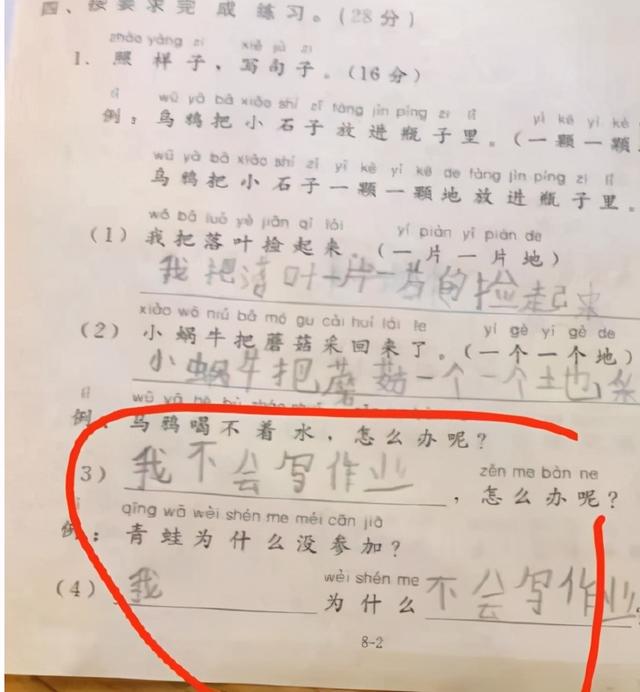 四、按要求完成练习。(28分)
zhào yàng zi xiě jù zi
1. 照样子，写句子。(16分)
lì wū yā bǎ xiǎo shí zǐ fàng jìn píng zi lǐ yì kē yì kē
例：乌鸦把小石子放进瓶子里。(一颗一颗
wū yā bǎ xiǎo shí zǐ yì kē yì kē de fàng jìn píng zi lǐ
乌鸦把小石子一颗一颗地放进瓶子里。
wǒ bǎ luò yè jiǎn qǐ lái yí piàn yí piàn de
(1) 我把落叶捡起来 (一片一片地)
我把落叶一片一片的捡起来
xiǎo wō niú bǎ mó gu cǎi huí lái le yí gè yí gè de
(2) 小蜗牛把蘑菇采回来了。(一个一个地)
小蜗牛把蘑菇一个一个地
lì wū yā hē bù
例：乌鸦喝不着水，怎么办呢？
zěn me bàn ne
3) 我不会写作业，怎么办呢？
qīng wā wèi shén me méi cān jiā
例：青蛙为什么没参加？
wèi shén me
(4) 我为什么不会写作业
8-2